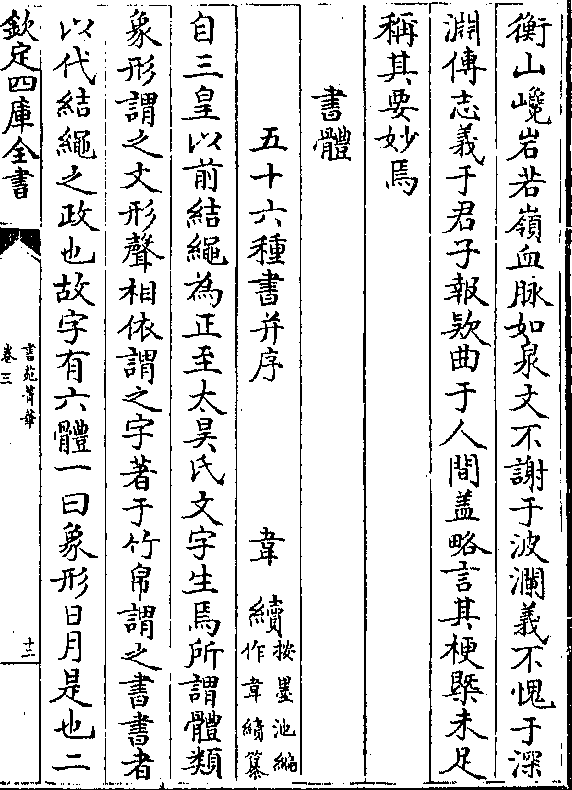 衡山巉岩若嶺血脉如泉文不謝于波瀾義不愧于深
淵傳志義于君子報欵曲于人間盖略言其梗槩未足
稱其要妙焉
書體
五十六種書并序 韋續按墨池編作韋續纂
自三皇以前結繩為正至太昊氏文字生焉所謂體類
象形謂之文形聲相依謂之字著于竹帛謂之書書者
以代結繩之政也故字有六體一曰象形日月是也二
欽定四庫全書
書苑菁華
卷三
十三